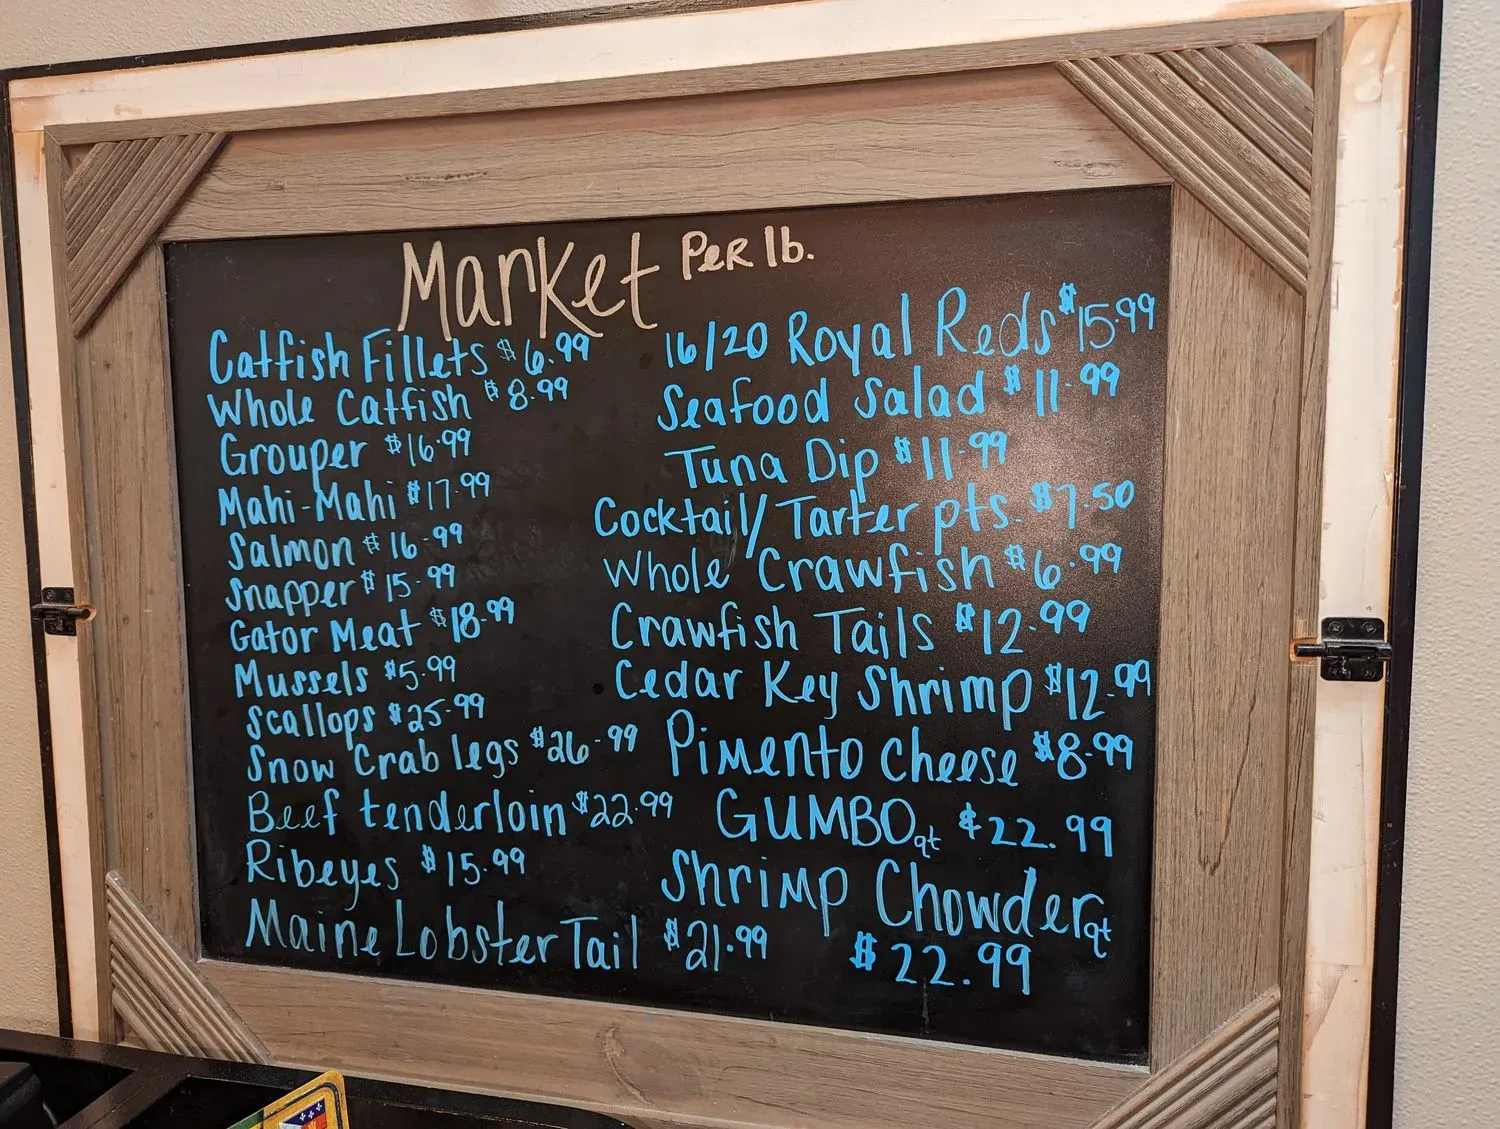 Market Per lb.
Catfish Fillets $6.99
Whole Catfish $8.99
Grouper $16.99
Mahi-Mahi $17.99
Salmon $16.99
Snapper $15.99
Gator Meat $18.99
Mussels $5.99
Scallops $25.99
Snow Crab legs $26.99
Beef tenderloin $22.99
Ribeyes $15.99
Maine Lobster Tail $21.99
16/20 Royal Reds $15.99
Seafood Salad $11.99
Tuna Dip $11.99
Cocktail/Tarter pts. $7.50
Whole Crawfish $6.99
Crawfish Tails $12.99
Cedar Key Shrimp $12.99
Pimento cheese $8.99
GUMBO qt $22.99
Shrimp Chowder qt
$22.99